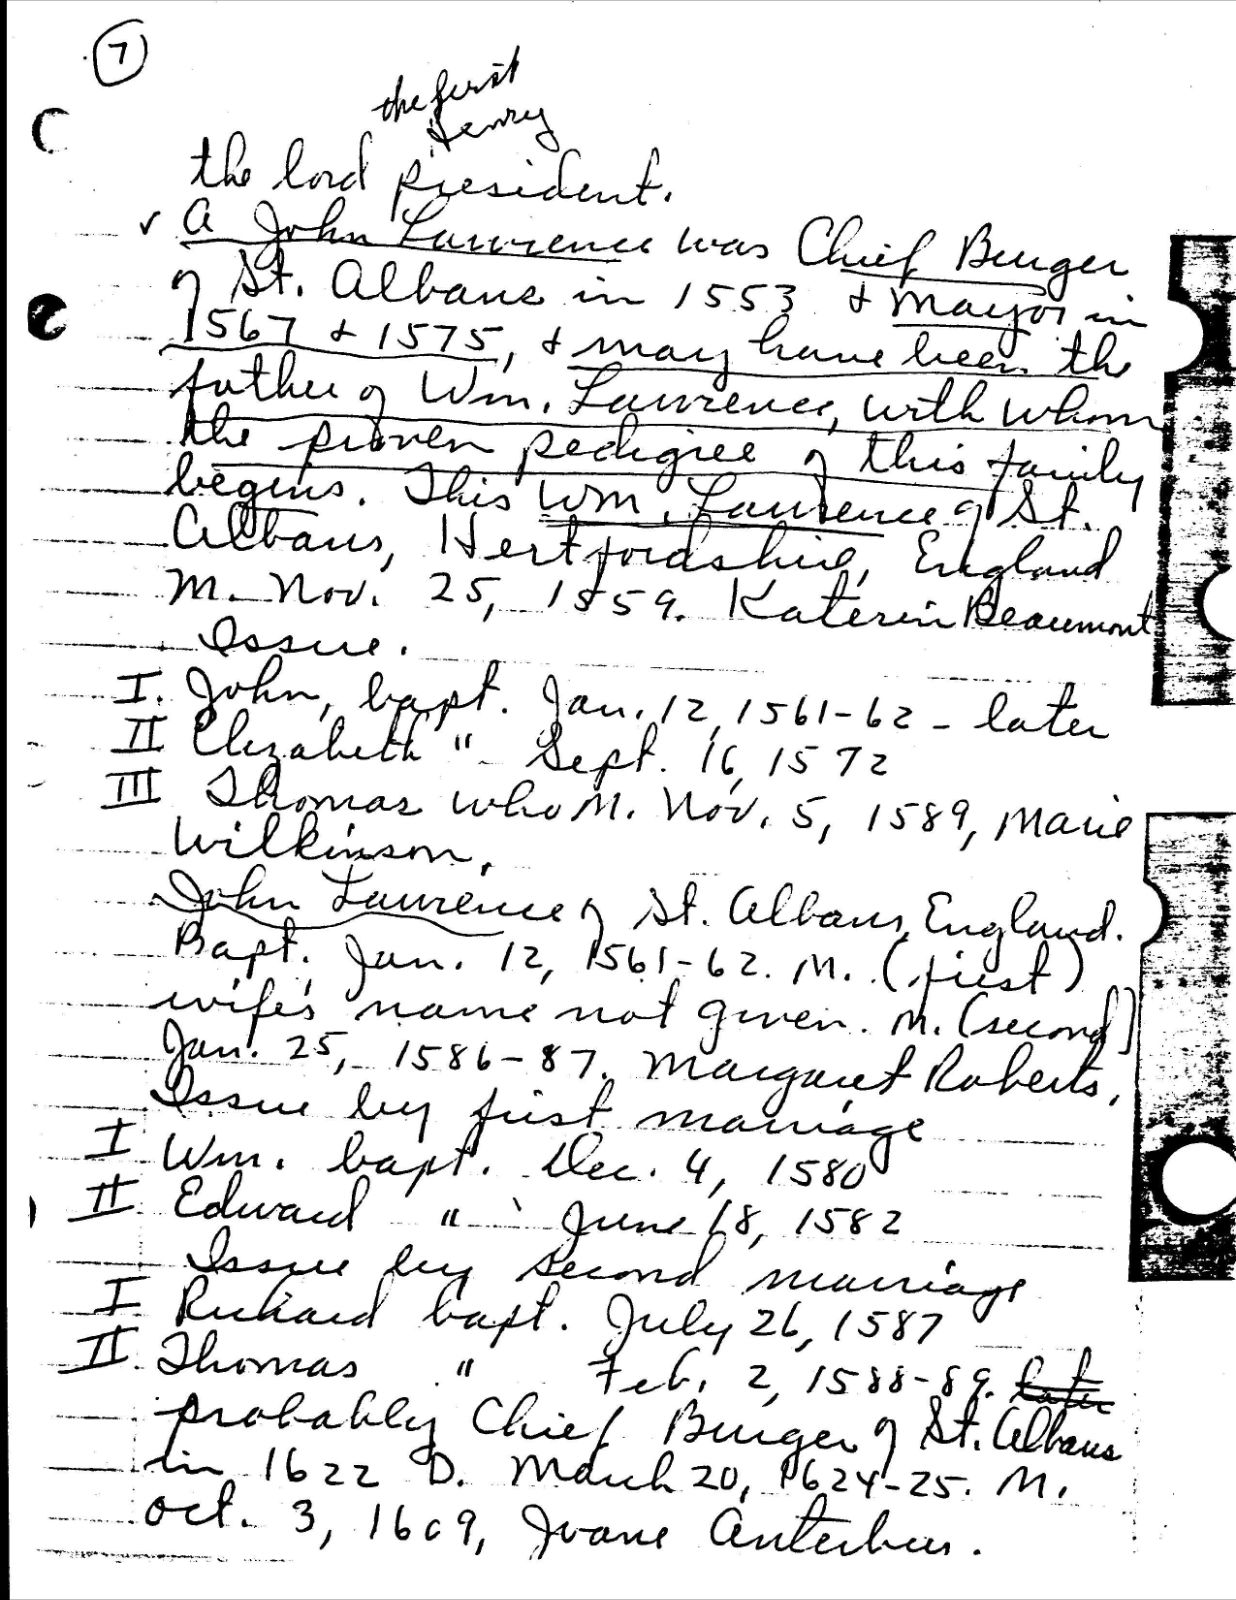 7
the first
Henry
the lord president.
✓ A John Lawrence was Chief Burger
of St. Albans in 1553 & Mayor in
1567 & 1575, & may have been the
father of Wm. Lawrence, with whom
the proven pedigree of this family
begins. This Wm. Lawrence of St.
Albans, Hertfordshire, England
M. Nov. 25, 1559. Katerin Beaumont
Issue.
I. John, bapt. Jan. 12, 1561-62 - later
II Elizabeth " Sept. 16, 1572
III Thomas who M. Nov. 5, 1589, Marie
Wilkinson.
John Lawrence of St. Albans, England.
Bapt. Jan. 12, 1561-62. M. (first)
wife's name not given. M. (second)
Jan. 25, 1586-87. Margaret Roberts.
Issue by first marriage
I Wm. bapt. Dec. 4, 1580
II Edward " June 18, 1582
Issue by second marriage
I Richard bapt. July 26, 1587
II Thomas " Feb. 2, 1588-89. later
probably Chief Burger of St. Albans
in 1622 D. March 20, 1624-25. M.
Oct. 3, 1609, Joane Anterbus.